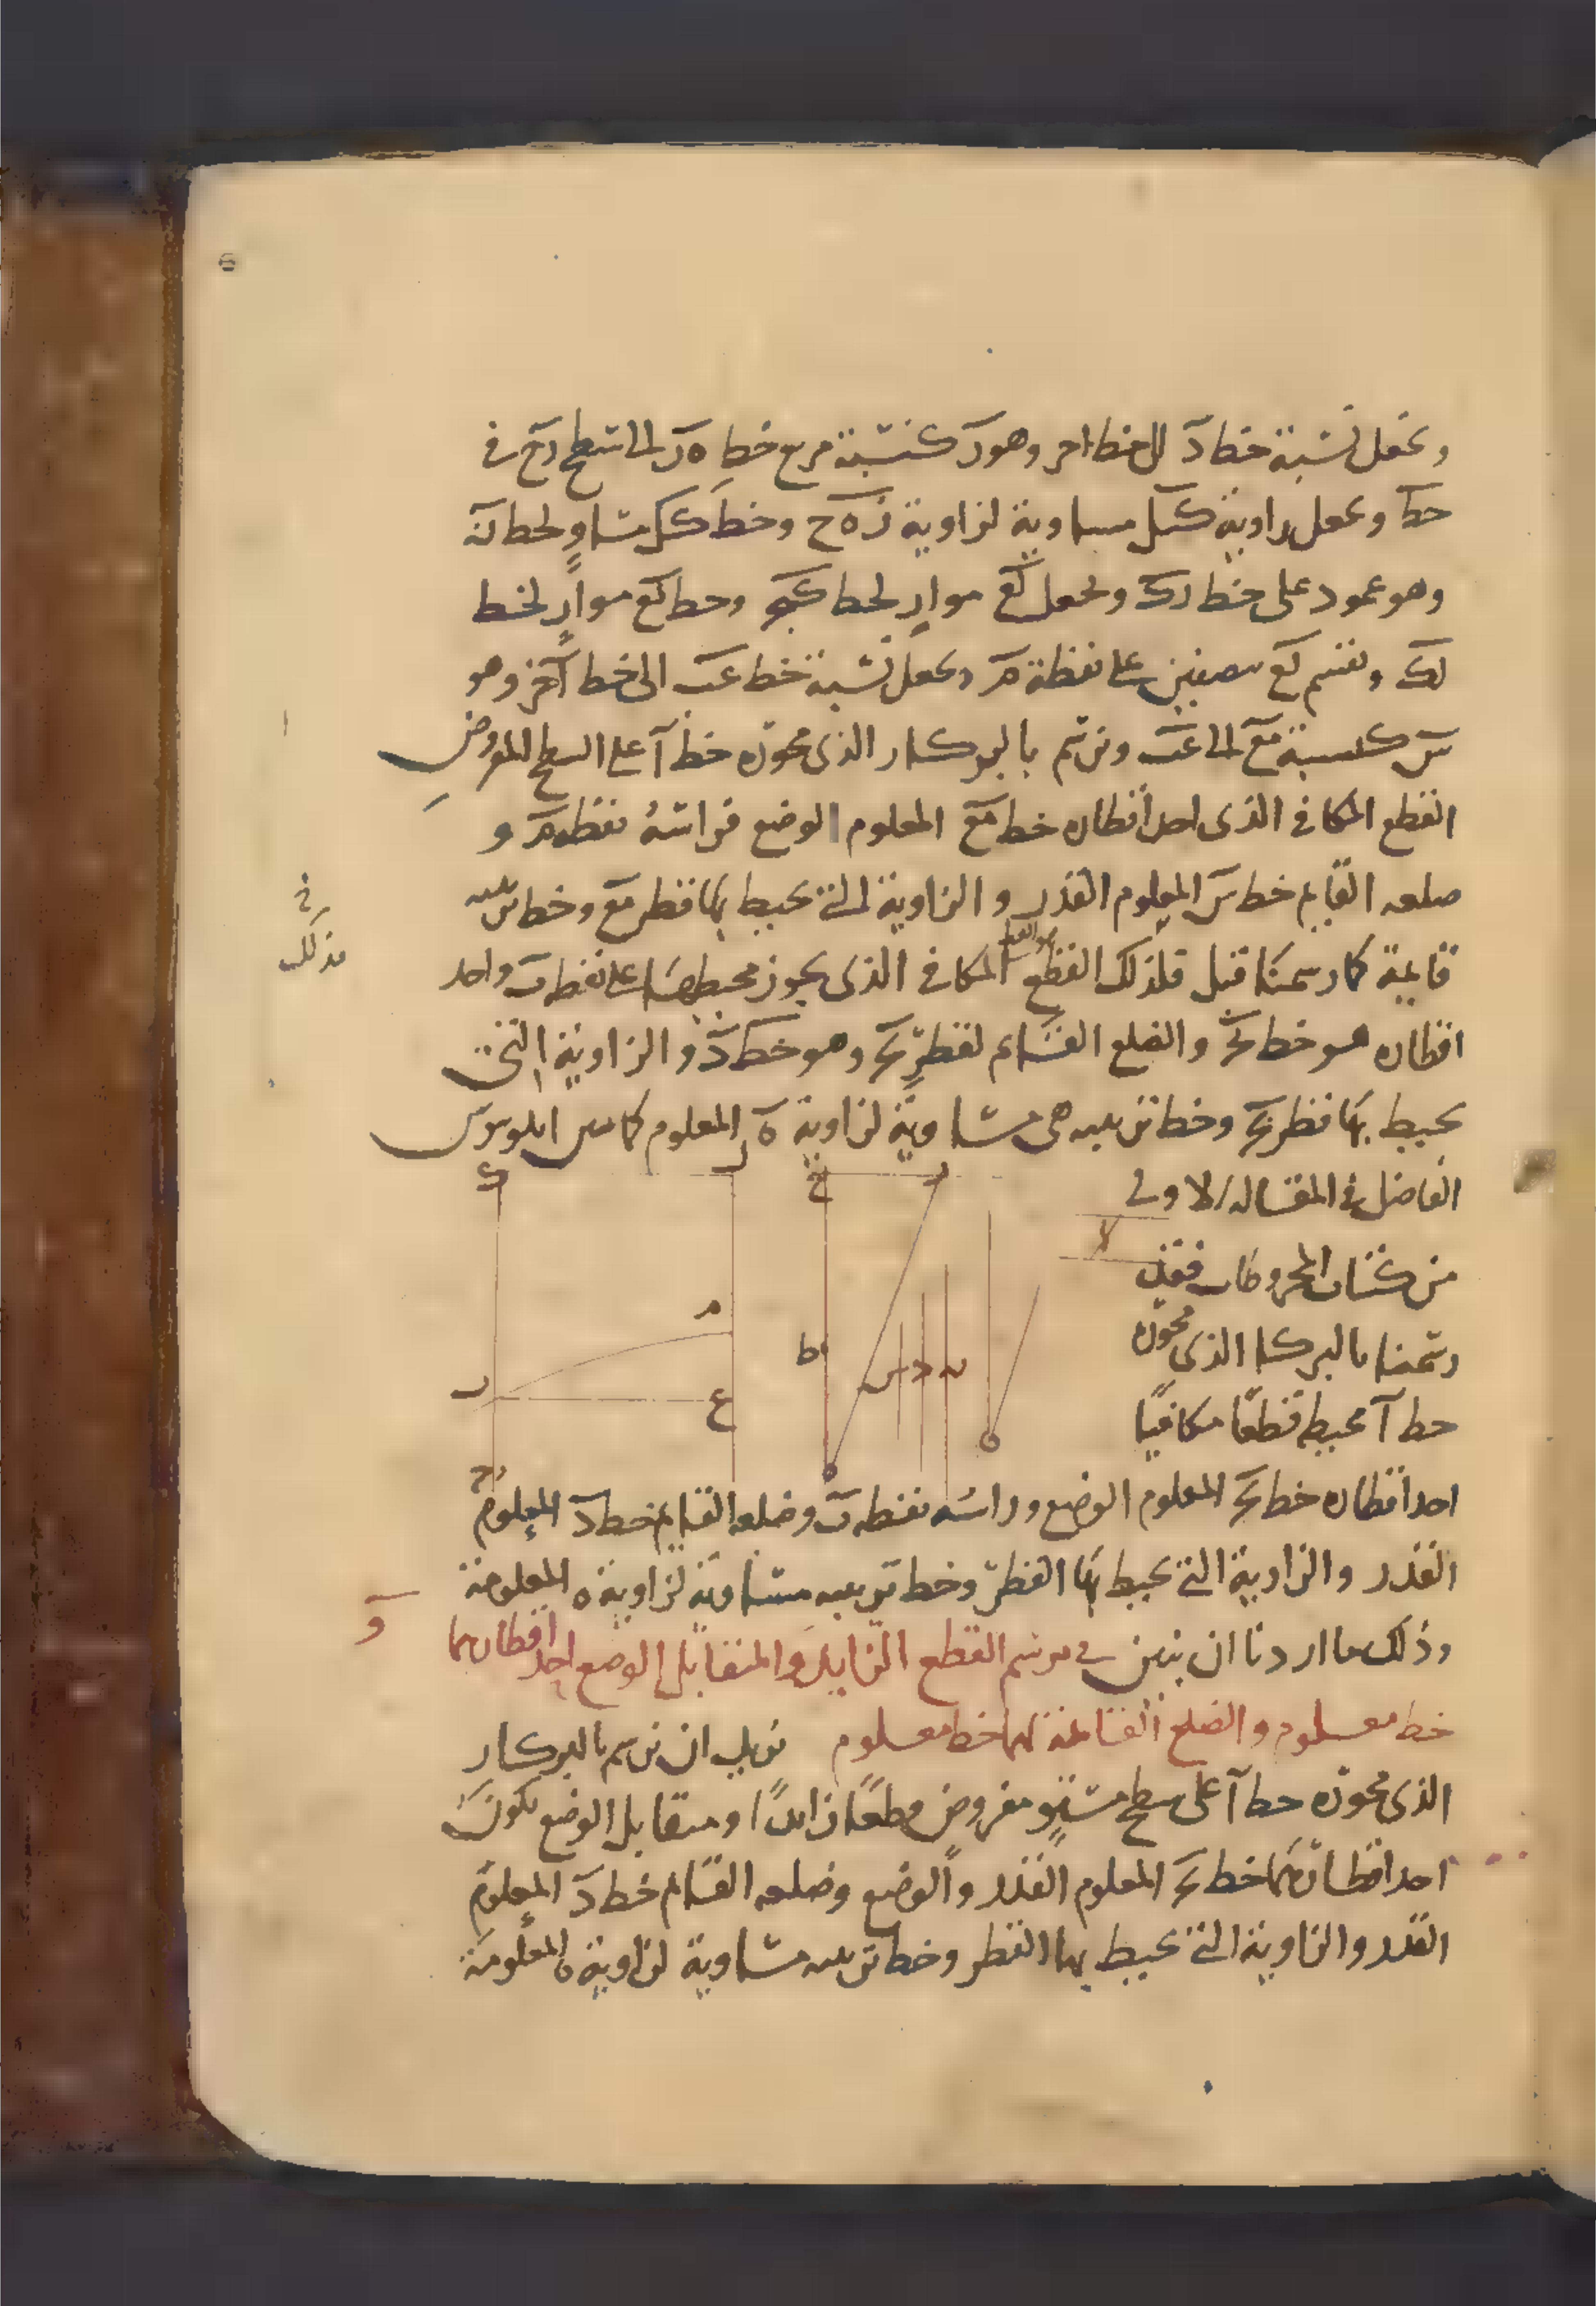 ونجعل نسبة خط د الى خط اخر وهو ن كنسبة مربع خط ه ز الى سطح زح في
حط ونجعل زاوية كبل مساوية لزاوية زه ح وخط كل مساو لخط نه
وهو عمود على خط لك ونجعل كع مواز لخط كبج وخط بع مواز لخط
لك ونقسم لع بنصفين على نقطة م ونجعل نسبة خط عب الى خط آخر وهو
س كنسبة مع الى عب ونرسم بالبركار الذى محوره خط آ على السطح المفروض
القطع المكافى الذى احد اقطاره خط مع المعلوم الوضع فراسه نقطة م و
ضلعه القايم خط س المعلوم القدر والزاوية التى يحيط بها قطر مع وخط ترتيبه
قايمة كما رسمنا قبل فلذلك القطع المكافى الذى يجوز محيطه على نقطة ب واحد
اقطاره هو خط بج والضلع القايم لقطر بج وهو خط د والزاوية التى
يحيط بها قطر بج وخط ترتيبه هى مساوية لزاوية ه المعلوم كما بين ابلونيوس
الفاضل فى المقالة الاولى
من كتاب المخروطات فقد
رسمنا بالبركار الذى محوره
خط آ محيط قطعا مكافيا
احد اقطاره خط بج المعلوم الوضع وراسه نقطة ب وضلعه القايم خط د المعلوم
القدر والزاوية التى يحيط بها القطر وخط ترتيبه مساوية لزاوية ه المعلومة
وذلك ما اردنا ان نبين فى رسم القطع الزايد والمتقابل الوضع احد اقطارهما
خط معلوم والضلع القايمة لهما خط معلوم نريد ان نرسم بالبركار
الذى محوره خط آ على سطح مستو مفروض قطعا زايدا ومتقابل الوضع يكون
احد اقطارهما خط بج المعلوم القدر والوضع وضلعه القايم خط د المعلوم
القدر والزاوية التى يحيط بها القطر وخط ترتيبه مساوية لزاوية ه المعلومة
و
ل
ح
ز
ط
م
ع
ب
س
د
ن
ه
ه
ج